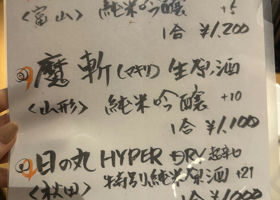 <富山> 純米吟醸 +5
1合 ¥1,200
魔斬(マキリ)生原酒
<山形> 純米吟醸 +10
1合 ¥1,100
日の丸 HYPER DRY 超辛口
<秋田> 特別純米原酒 +21
¥1000